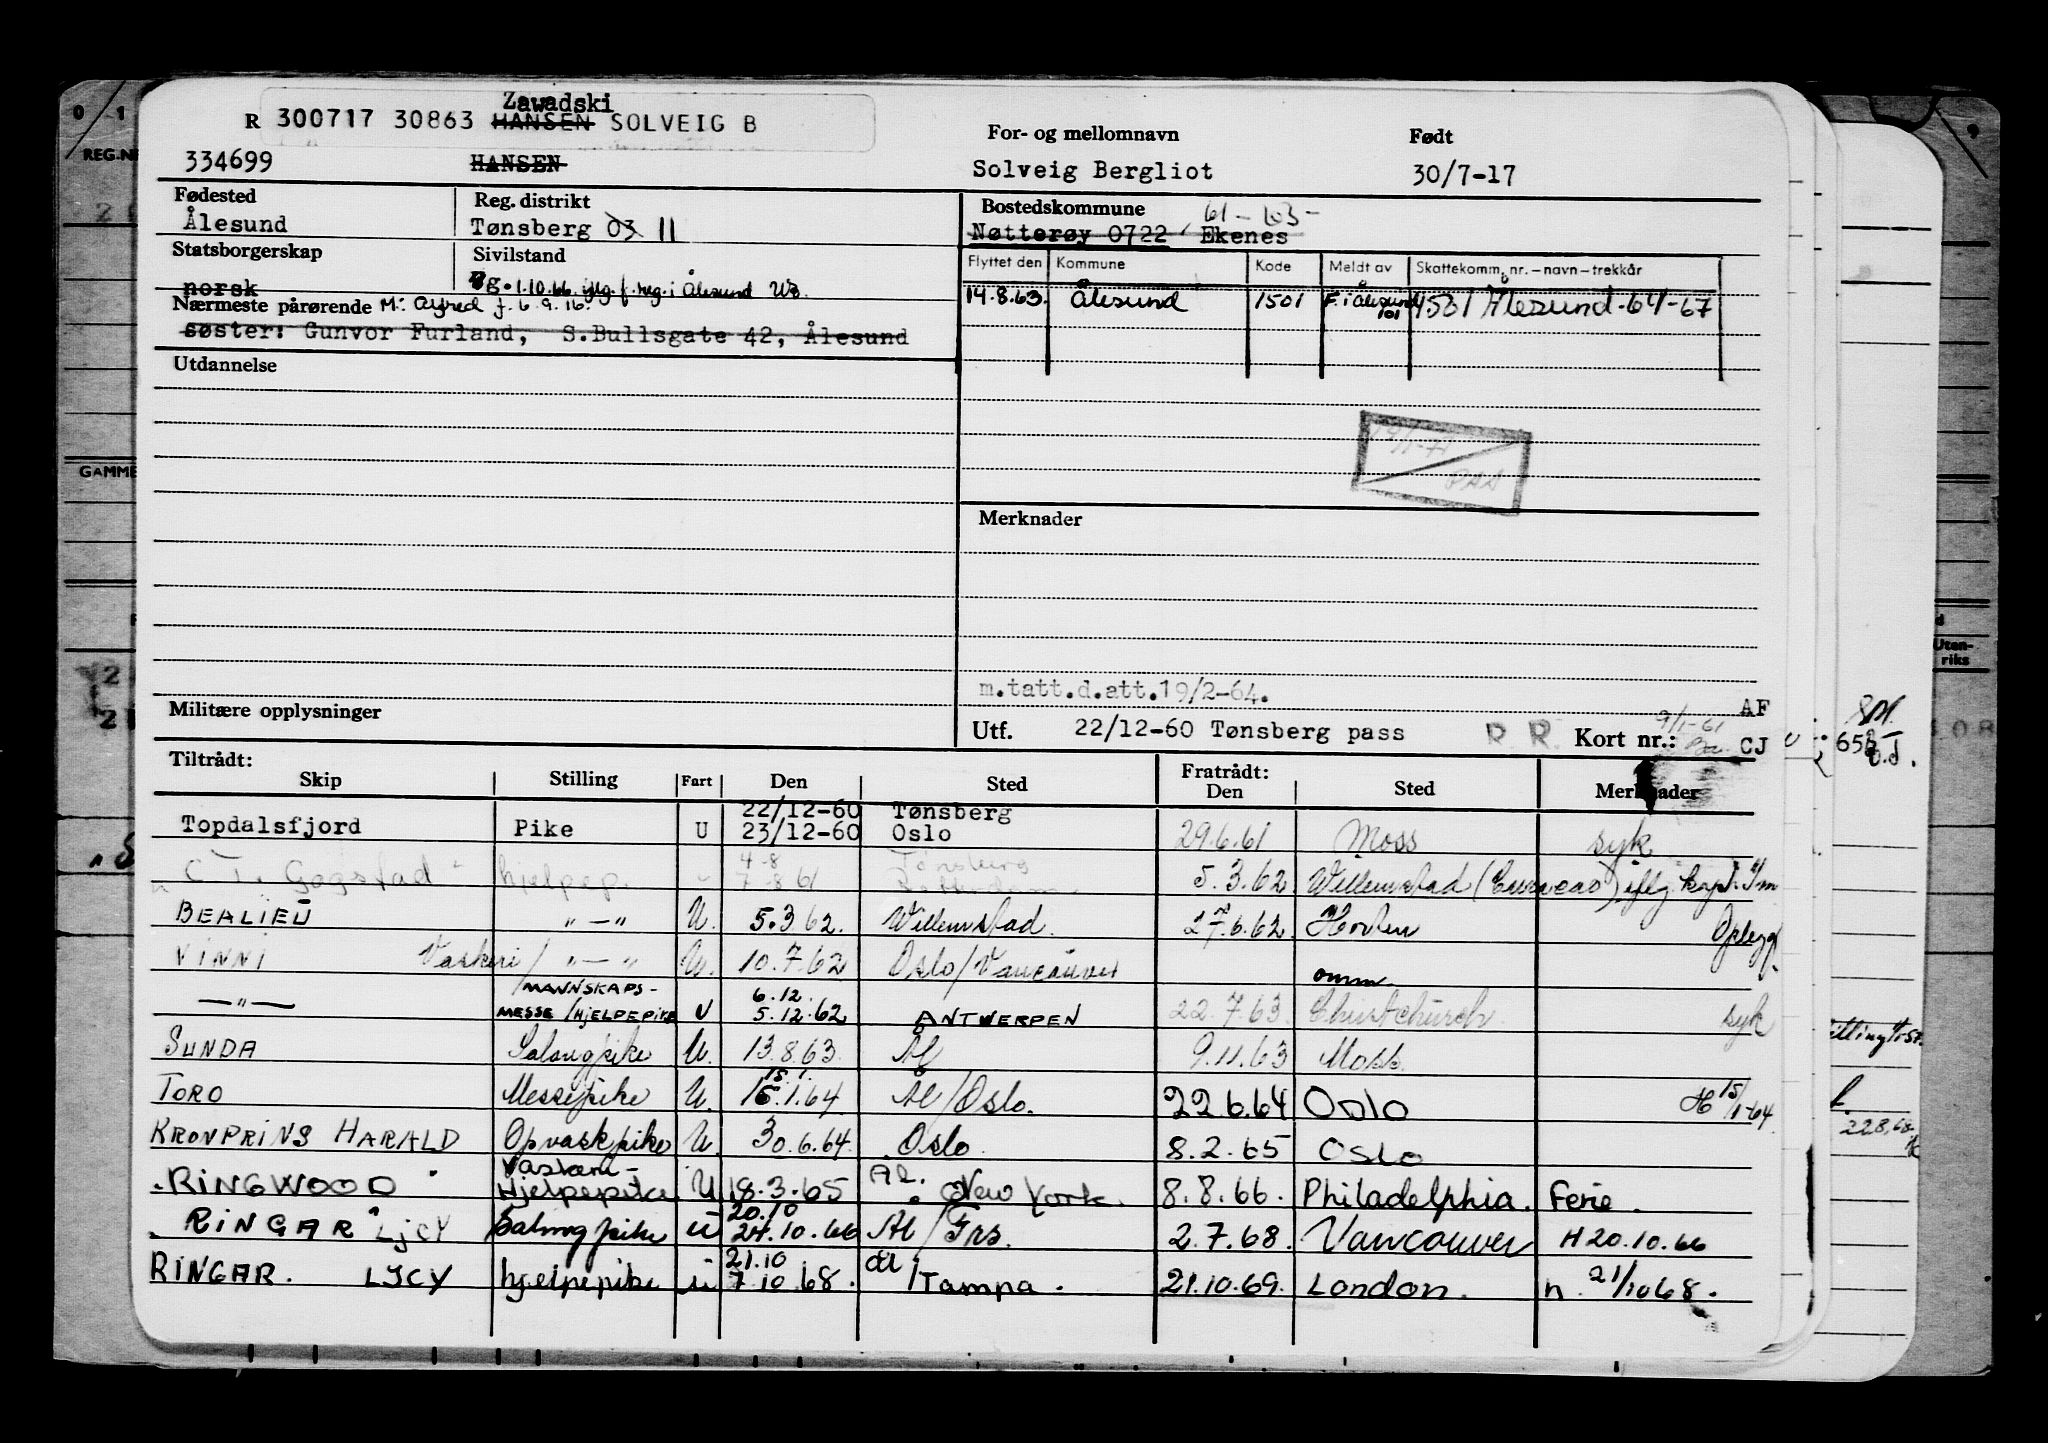 Zawadski
R 300717 30863 HANSEN SOLVEIG B
For- og mellomnavn
Født
334699 HANSEN
Solveig Bergliot
30/7-17
Fødested
Ålesund
Reg. distrikt
Tønsberg 03 11
Bostedskommune 61-103-
Nøtterøy 0722 Ekenes
Statsborgerskap
norsk
Sivilstand
g. 1.10.66 iflg. f.reg. i Ålesund
Flyttet den Kommune Kode Meldt av Skattekomm. nr. – navn – trekkår
14.8.63. Ålesund 1501 F. i Ålesund 101 1501 Ålesund-64-67
Nærmeste pårørende M: Alfred f. 6.9.16.
søster: Gunvor Furland, S.Bullsgate 42, Ålesund
Utdannelse
Merknader
m.tatt.d.att.19/2-64.
Militære opplysninger
AF
Utf. 22/12-60 Tønsberg pass R R Kort nr.: 9/1-61 CJ
Tiltrådt:
Skip Stilling Fart Den Sted
Fratrådt:
Den Sted Merknader
22/12-60 Tønsberg
Topdalsfjord Pike U 23/12-60 Oslo 29.6.61 Moss syk
4-8 Tønsberg
C.T. Gogstad hjelpep. 7-8 61 Rotterdam 5.3.62 Willemstad (Curacao) iflg. kapt.
BEALIEU "—" U. 5.3.62. Willemstad. 27.6.62. Horten Oplegg
VINNI Vaskeri/ "—" U. 10.7.62 Oslo/Vancouver omm.
MANNSKAPS- 6.12.
—"— MESSE/HJELPEPIKE U 5.12.62 ANTWERPEN 22.7.63. Christchurch syk
SUNDA Salongpike U. 13.8.63. Ål 9.11.63 Moss.
15.1.
TORO Messepike U. 16.1.64. Ål/Oslo. 22.6.64 Oslo H 15/1-64
KRONPRINS HARALD Opvaskpike U. 30.6.64. Oslo 8.2.65 Oslo
RINGWOOD Hjelpepike U 18.3.65 Ål. New York. 8.8.66. Philadelphia. Ferie.
20.10
RINGAR LJCY Salongpike U 24.10.66 Ål/Frs. 2.7.68. Vancouver H 20.10.66
21.10
RINGAR. LJCY hjelpepike U 7.10.68. ål/Tampa. 21.10.69. London. n. 21/10 68.